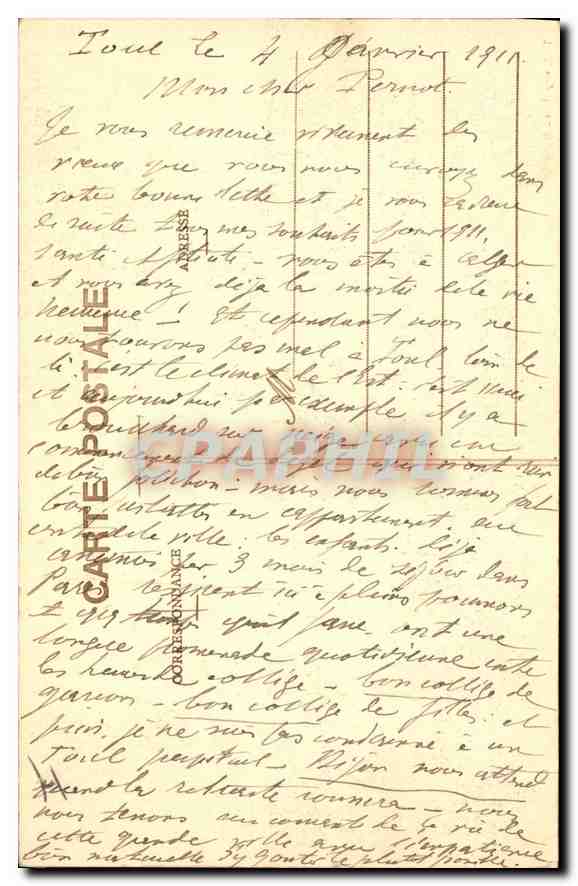 Toul le 4 Février 1911
Mon cher Pernot.
Je vous remercie vivement des
vœux que vous nous envoyez dans
votre bonne lettre et je vous adresse
de suite tous mes souhaits pour 1911,
santé - vous êtes à Alger
et vous avez déjà la moitié de la vie
heureuse ! Et cependant nous ne
nous trouvons pas mal à Toul loin de
là, c'est le climat de l'Est :
et aujourd'hui par exemple il y a
brouillard sur
commencement de
mais nous sommes fort
bien installés en appartement, au
centre de la ville : les enfants déjà
par 3 mois de séjour dans
Paris respirent ici à pleins poumons
et ont une
longue promenade quotidienne entre
les heures de collège - bon collège de
garçons - bon collège de filles : et
puis, je ne suis pas condamné à un
Toul perpétuel - Dijon nous attend
quand la retraite sonnera - nous
nous tenons au courant de la vie de
cette grande ville avec l'impatience
bien naturelle d'y goûter le plutôt possible.
CARTE POSTALE
CORRESPONDANCE
ADRESSE
CPAPHIL